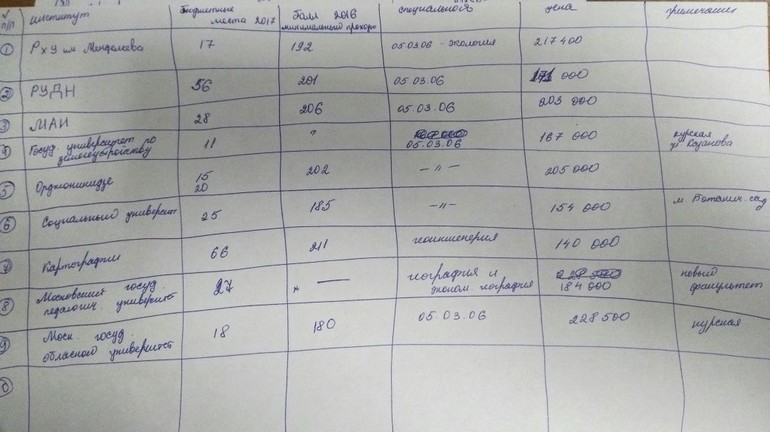 № п/п институт бюджетные места 2017 балл 2016 минимальный проходн специальность цена примечания
1 РхУ им Менделеева 17 192 05.03.06 - экология 217 400
2 РУДН 56 201 05.03.06 000
3 МАИ 28 206 05.03.06 203 000
4 Госуд. университет по землеустройству 11 " 05.03.06 167 000 курская
5 Орджоникидзе 15 20 202 -"- 205 000
6 Социальный университ 25 185 -"- 154 000 м. Ботанич. сад
7 Картографии 66 211 геоинженерия 140 000
8 Московский госуд. педагогич. университ 27 — география и эконом. география 184 000 новый факультет
9 Моск. госуд. обласного университ 18 180 05.03.06 228 500 курская